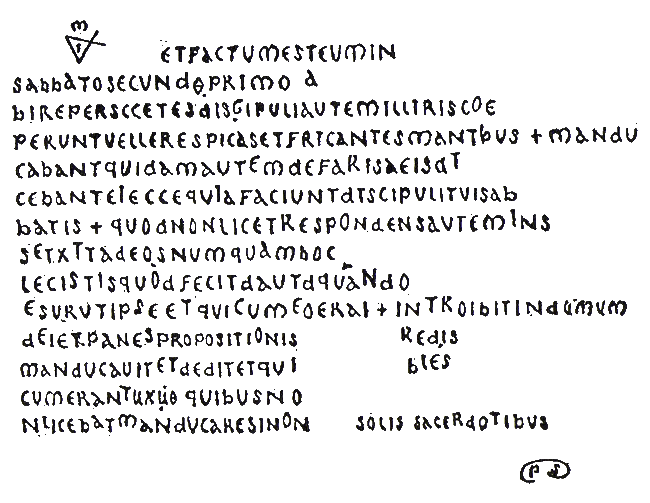 ETFACTUMESTEUMIN
SABBATOSECUNDOPRIMO A
BIREPERSCCETESDISGIPULIAUTEMILLIRISCOE
PERUNTUELLERESPICASETFRICANTESMANIBUS + MANDU
CABANTQUIDAMAUTEMDEFARISAEISDT
CEBANTEIECCEQUIAFACIUNTDISCIPULITUISAB
BATIS + QUODNONLICETRESPONDENSAUTEMINS
SETXTTADEOSNUMQUAMHOC
LECISTISQUODFECITDAUTDQUANDO
ESURUTIPSEETQUICUMEOERAI + INTROIBITINDOMUM
DEIETPANESPROPOSITIONIS REDIS
MANDUCAUITETDEDITETQUI BLES
CUMERANTUXUO QUIBUSNO
NLICEBATMANDUCARESINON SOLIS SACERDOTIBUS
PS